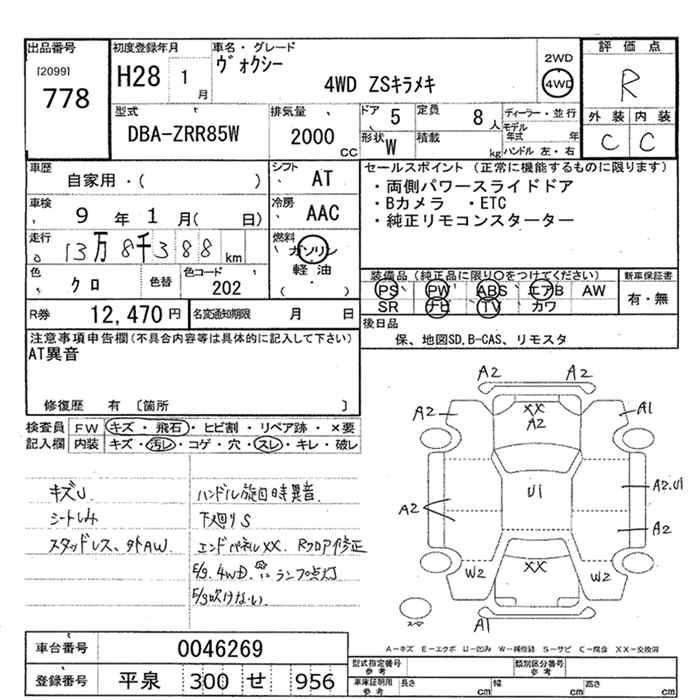 出品番号
[2099]
778
初度登録年月
H28 1 月
車名・グレード
ヴォクシー
4WD ZSキラメキ
2WD
4WD
評価点
R
外装 内装
C C
型式
DBA-ZRR85W
排気量
2000 CC
ドア 5
定員 8 人
形状 W
積載 kg
ディーラー・並行
モデル年式 年
ハンドル 左・右
車歴
自家用・( )
シフト AT
車検
9 年 1 月( 日)
冷房 AAC
走行
13万8千388 km
燃料
ガソリン
軽油
( )
色
クロ
色替
色コード
202
R券 12,470 円
名変通知期限 月 日
セールスポイント(正常に機能するものに限ります)
・両側パワースライドドア
・Bカメラ ・ETC
・純正リモコンスターター
装備品(純正品に限り○をつけてください)
PS PW ABS エアB AW
SR ナビ TV カワ
新車保証書
有・無
後日品
保、地図SD,B-CAS、リモスタ
注意事項申告欄(不具合内容等は具体的に記入して下さい)
AT異音
修復歴 有 〔箇所 〕
検査員記入欄
FW キズ・飛石・ヒビ割・リペア跡・×要
内装 キズ・汚レ・コゲ・穴・スレ・キレ・破レ
キズU
シートしみ
スタッドレス、外AW.
ハンドル旋回時異音.
下廻りS
エンドパネルXX. Rフロア修正
E/g. 4WD. ランプ点灯
E/g吹けない.
A2 A2
A2 XX A2 A1
U1
A2 A2.U1
A2
W2 XX W2
A1
スペア
A-キズ E-エクボ U-凹み W-補修跡 S-サビ C-腐食 XX-交換済
車台番号 0046269
登録番号 平泉 300 せ 956
型式指定番号 参考
類別区分番号 参考
車庫証明用 参考
長さ cm 幅 cm 高さ cm